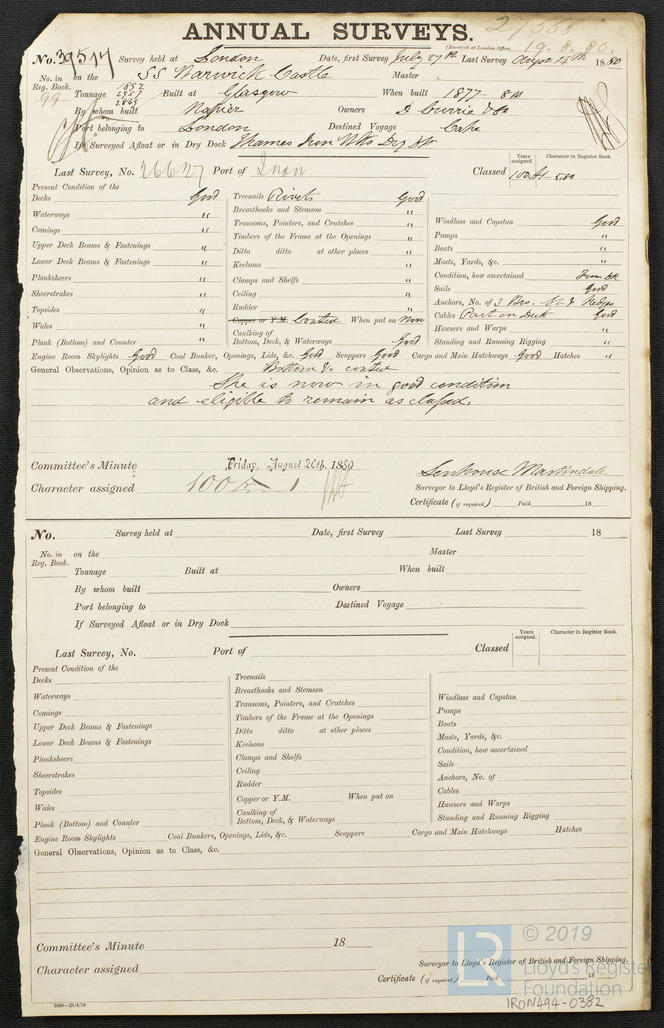 ANNUAL SURVEYS.
27538
(Received at London Office, 19.8.80.
No. 39517 Survey held at London Date, first Survey July 27th Last Survey Augst 14th 1880
No. in Reg. Book. 99 on the SS Warwick Castle Master
Tonnage 1892 2957 1869 Built at Glasgow When built 1877 - 8
By whom built Napier Owners D Currie & Co
Port belonging to London Destined Voyage Cape
If Surveyed Afloat or in Dry Dock Thames Iron Wks Dry Dk
Years assigned. Character in Register Book.
Last Survey, No. 26627 Port of Classed 100A1 5.80
Present Condition of the
Decks Good
Waterways "
Comings "
Upper Deck Beams & Fastenings "
Lower Deck Beams & Fastenings "
Planksheers "
Sheerstrakes "
Topsides "
Wales "
Plank (Bottom) and Counter "
Treenails Rivets Good
Breasthooks and Stemson "
Transoms, Pointers, and Crutches "
Timbers of the Frame at the Openings "
Ditto ditto at other places "
Keelsons "
Clamps and Shelfs "
Ceiling "
Rudder "
Copper or Y.M. Coated When put on Now
Caulking of Bottom, Deck, & Waterways Good
Windlass and Capstan Good
Pumps "
Boats "
Masts, Yards, &c. "
Condition, how ascertained From Dk
Sails Good
Anchors, No. of 3 Bro. St & Kedge
Cables Part on Deck Good
Hawsers and Warps "
Standing and Running Rigging "
Engine Room Skylights Good Coal Bunker, Openings, Lids, &c. Good Scuppers Good Cargo and Main Hatchways Good Hatches "
General Observations, Opinion as to Class, &c. Bottom &c coated
She is now in good condition
and eligible to remain as classed.
Committee's Minute Friday, August 20th, 1880
Character assigned 100 A 1
Senhouse Martindale
Surveyor to Lloyd's Register of British and Foreign Shipping.
Certificate (if required) Paid 18
No. Survey held at Date, first Survey Last Survey 18
No. in Reg. Book. on the Master
Tonnage Built at When built
By whom built Owners
Port belonging to Destined Voyage
If Surveyed Afloat or in Dry Dock
Years assigned. Character in Register Book.
Last Survey, No. Port of Classed
Present Condition of the
Decks
Waterways
Comings
Upper Deck Beams & Fastenings
Lower Deck Beams & Fastenings
Planksheers
Sheerstrakes
Topsides
Wales
Plank (Bottom) and Counter
Treenails
Breasthooks and Stemson
Transoms, Pointers, and Crutches
Timbers of the Frame at the Openings
Ditto ditto at other places
Keelsons
Clamps and Shelfs
Ceiling
Rudder
Copper or Y.M. When put on
Caulking of Bottom, Deck, & Waterways
Windlass and Capstan
Pumps
Boats
Masts, Yards, &c.
Condition, how ascertained
Sails
Anchors, No. of
Cables
Hawsers and Warps
Standing and Running Rigging
Engine Room Skylights Coal Bunkers, Openings, Lids, &c. Scuppers Cargo and Main Hatchways Hatches
General Observations, Opinion as to Class, &c.
Committee's Minute 18
Character assigned
Surveyor to Lloyd's Register of British and Foreign Shipping.
Certificate (if required) Paid 18
2000—29/4/79
LR © 2019
Lloyd's Register
Foundation
IRON494-0382